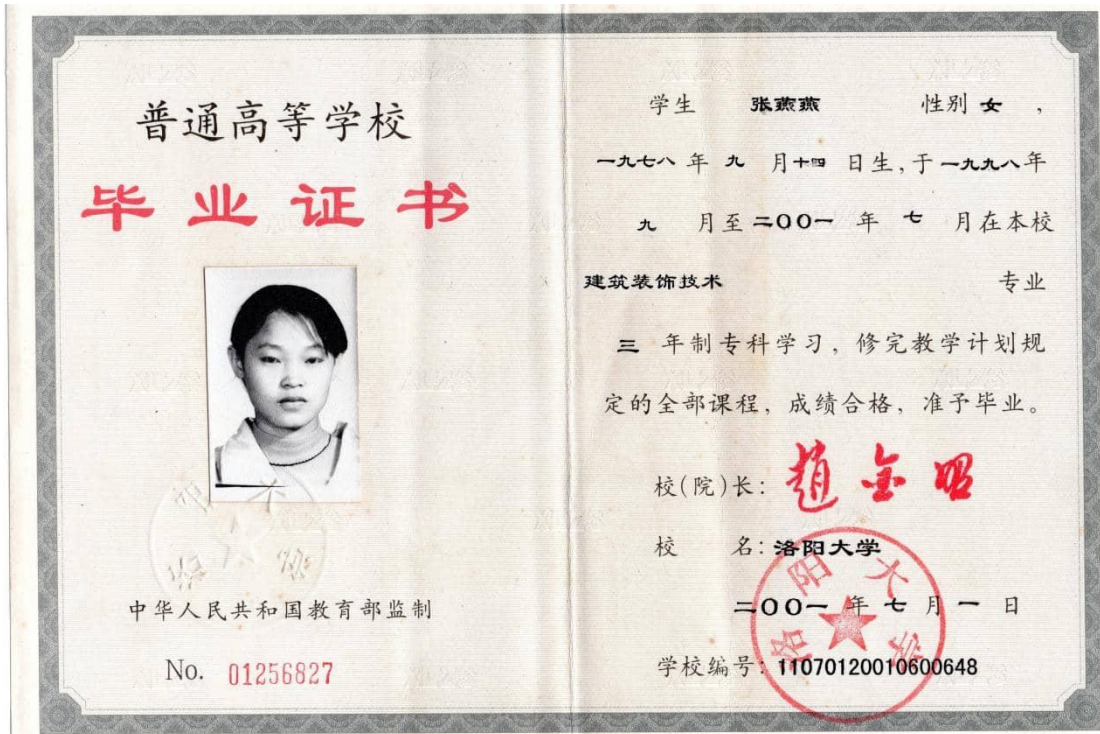 普通高等学校
毕业证书
中华人民共和国教育部监制
No. 01256827
学生 张燕燕 性别 女 ,
一九七八 年 九 月 十四 日生,于 一九九八 年
九 月至 二00一 年 七 月在本校
建筑装饰技术 专业
三 年制专科学习，修完教学计划规
定的全部课程，成绩合格，准予毕业。
校(院)长: 赵金昭
校 名: 洛阳大学
洛阳大学
二00一 年 七 月 一 日
学校编号: 11070120010600648